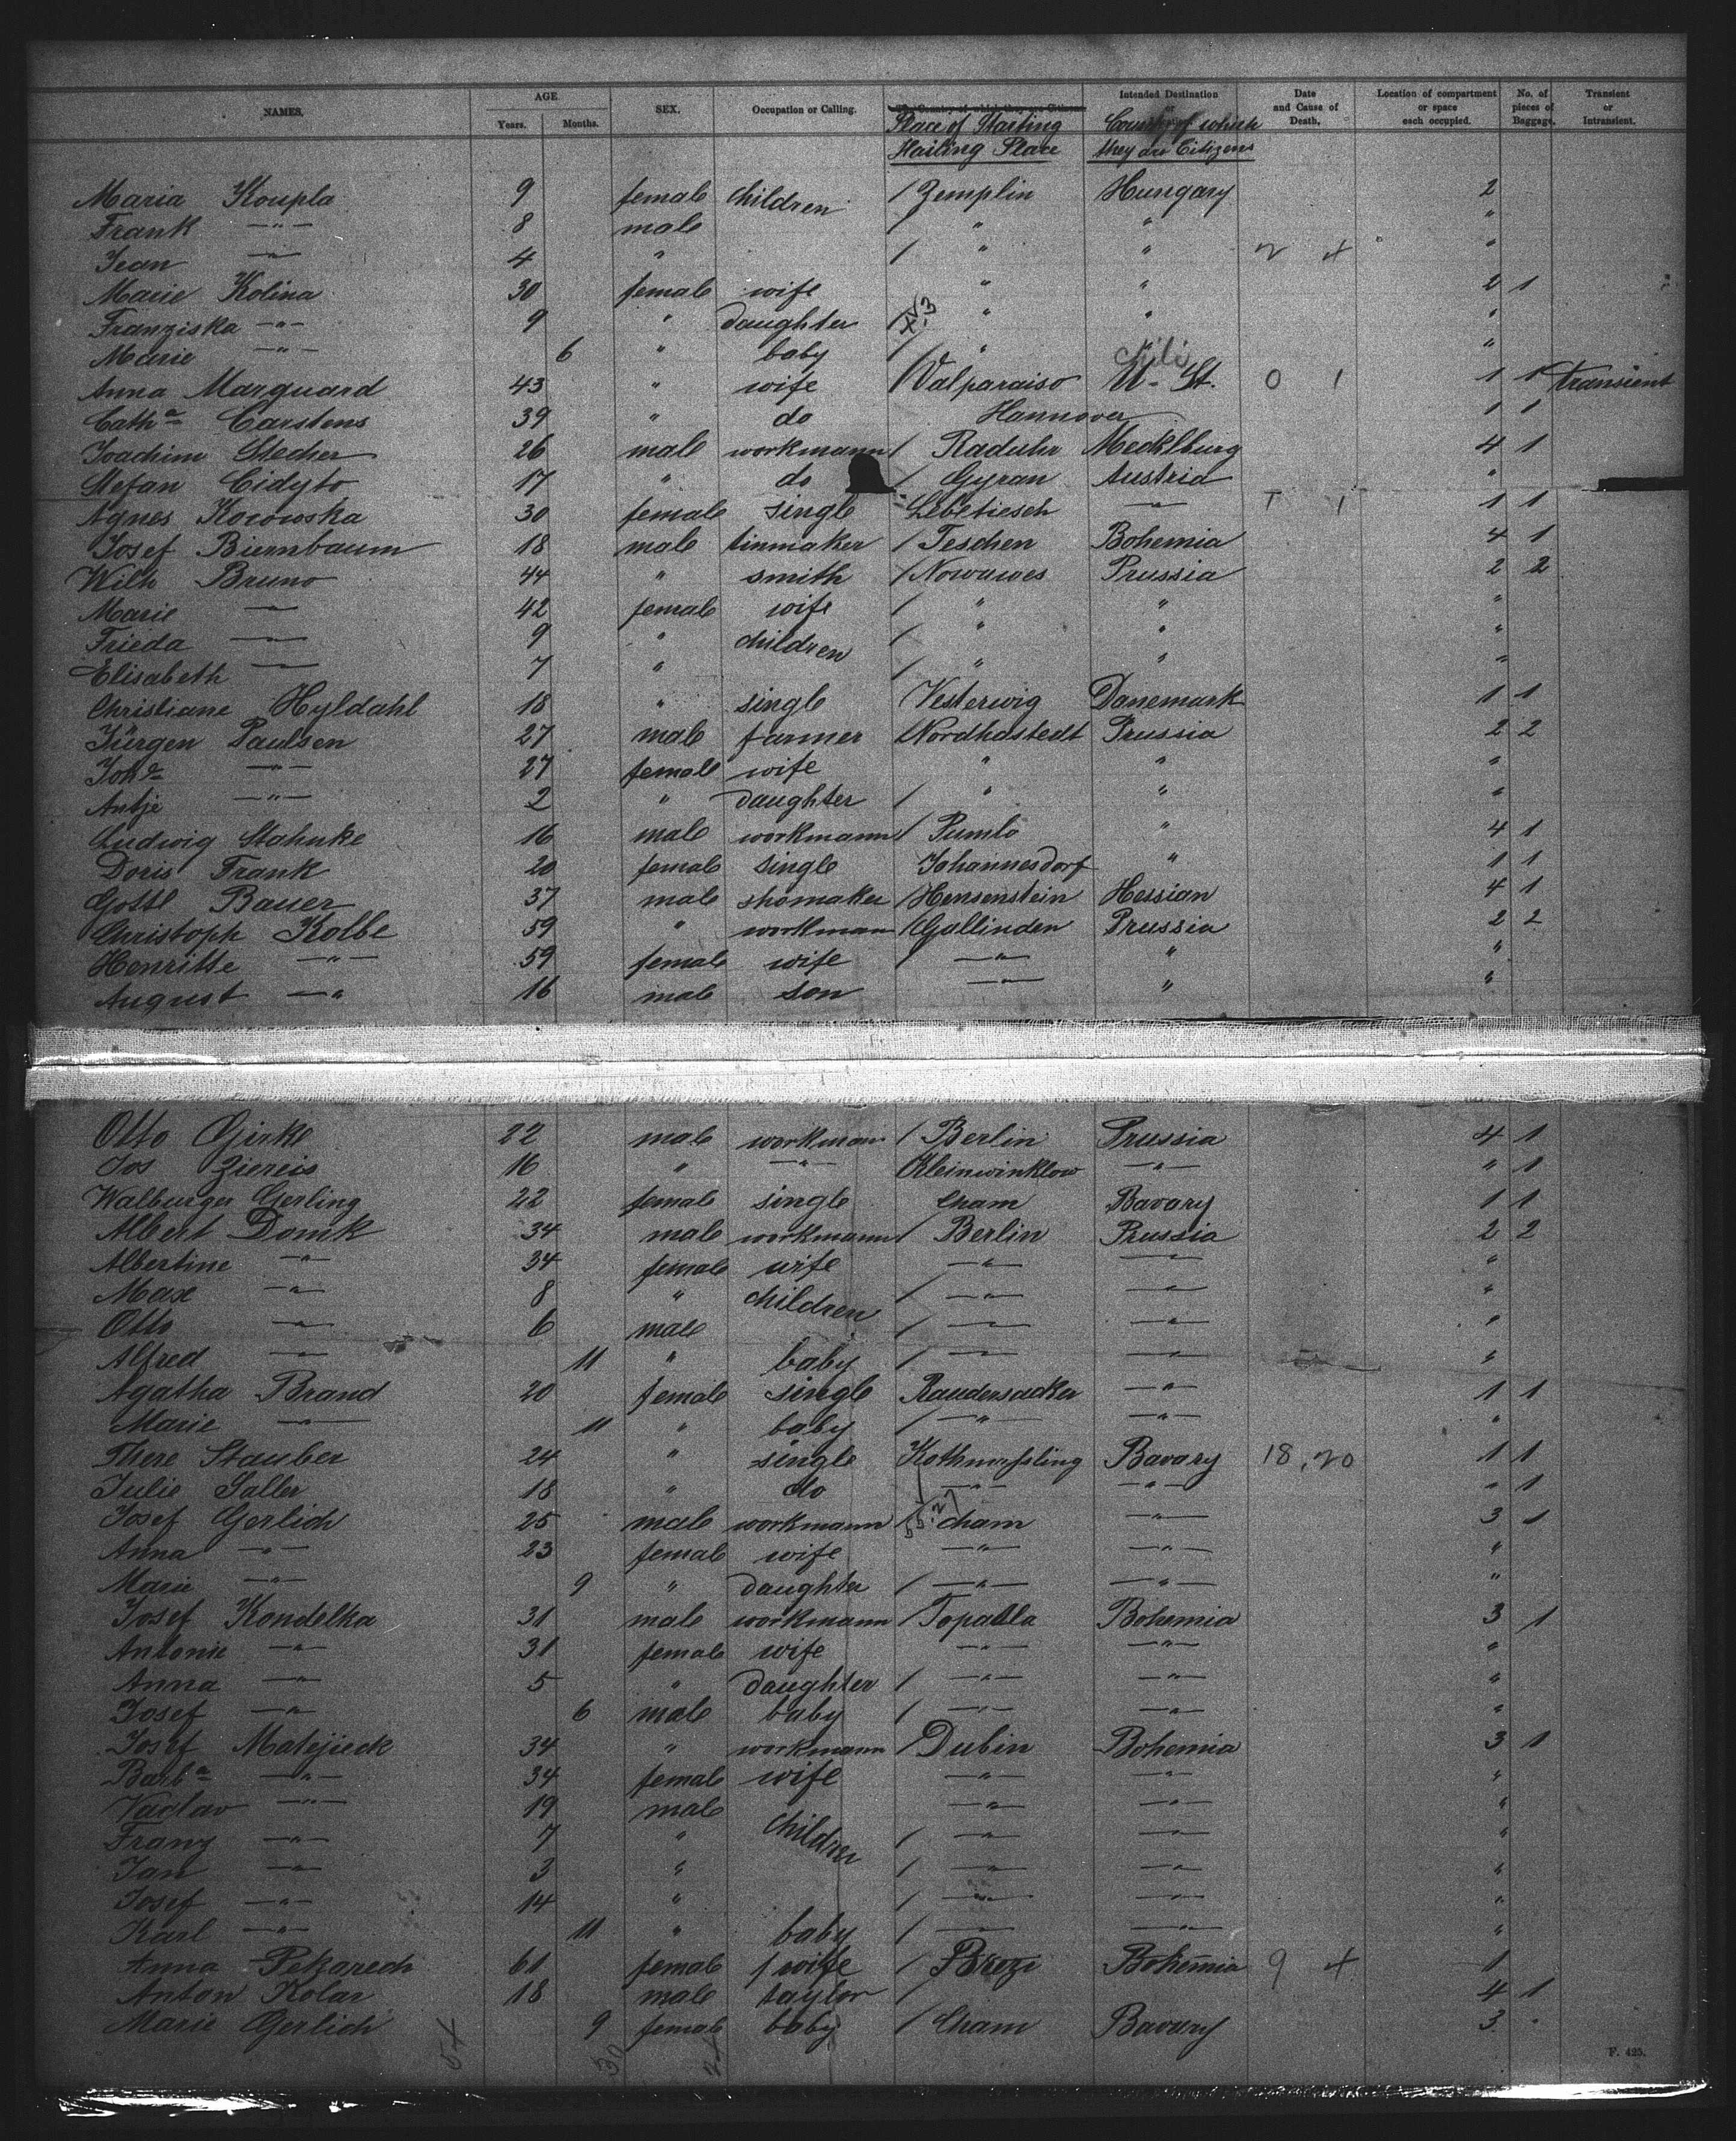 NAMES. AGE. SEX. Occupation or Calling. The Country of which they are Citizens Intended Destination Date and Cause of Death. Location of compartment or space each occupied. No. of pieces of Baggage. Transient or Intransient.
Years. Months. Place of Starting Hailing Place Country of which they are Citizens
Maria Koupla 9 female children / Zemplin Hungary 2
Frank —"— 8 male / " " "
Jean —"— 4 " / " " 2 4 "
Marie Kolina 30 female wife " " 2 1
Franziska —"— 9 " daughter / " " "
Marie —"— 6 " baby / " " "
Anna Marquard 43 " wife / Valparaiso Chili U. St. 0 1 1 1 transient
Catha Carstens 39 " do Hannover 1 1
Joachim Stecher 26 male workmann / Raduhr Mecklburg 4 1
Stefan Cidyto 17 " do / Gyran Austria "
Agnes Kocowska 30 female single Lebetiesch —"— T 1 1 1
Josef Biernbaum 18 male tinmaker / Teschen Bohemia 4 1
Wilh Bruno 44 " smith / Nowawes Prussia 2 2
Marie —"— 42 female wife / " " "
Frieda —"— 9 " children / " " "
Elisabeth —"— 7 " / " " "
Christiane Hyldahl 18 " single Vesterwig Danemark 1 1
Jürgen Paulsen 27 male farmer Nordhastedt Prussia 2 2
Joha —"— 27 female wife " " "
Antje —"— 2 " daughter / " " "
Ludwig Stahnke 16 male workmann / Pumlo " 4 1
Doris Frank 20 female single Johannesdorf " 1 1
Gottl Bauer 37 male shomaker / Hensenstein Hessian 4 1
Christoph Kolbe 59 " workmann / Gallinden Prussia 2 2
Henritte —"— 59 female wife / —"— " "
August —"— 16 male son —"— " "
Otto Girke 22 male workman / Berlin Prussia 4 1
Jos Ziereis 16 " —"— Kleinwinklow —"— " 1
Walburger Gerling 22 female single Cham Bavary 1 1
Albert Domk 34 male workmann / Berlin Prussia 2 2
Albertine —"— 34 female wife —"— —"— "
Max —"— 8 " children / —"— —"— "
Otto —"— 6 male / —"— —"— "
Alfred —"— 11 " baby / —"— —"— "
Agatha Brand 20 female single Randersacker —"— 1 1
Marie —"— 11 " baby / —"— —"— "
There Stauber 24 " single Kothmassling Bavary 18, 20 1 1
Julie Saller 18 " do —"— —"— " 1
Josef Gerlich 25 male workmann / Cham —"— 3 1
Anna —"— 23 female wife —"— —"— "
Marie —"— 9 " daughter / —"— —"— "
Josef Kondelka 31 male workmann / Topalla Bohemia 3 1
Antonie —"— 31 female wife —"— —"— "
Anna —"— 5 " daughter / —"— —"— "
Josef —"— 6 male baby / —"— —"— "
Josef Matejicek 34 " workmann / Dubin Bohemia 3 1
Barba —"— 34 female wife —"— —"— "
Vaclav —"— 19 male —"— —"— "
Franz —"— 7 " children / —"— —"— "
Jan —"— 3 " / —"— —"— "
Josef —"— 14 " / —"— —"— "
Karl —"— 11 " baby / —"— —"— "
Anna Pekarech 61 female wife / Brezi Bohemia 9 4 1
Anton Kolar 18 male taylor / 4 1
Marie Gerlich 9 female baby / Cham Bavary 3 "
F. 425.